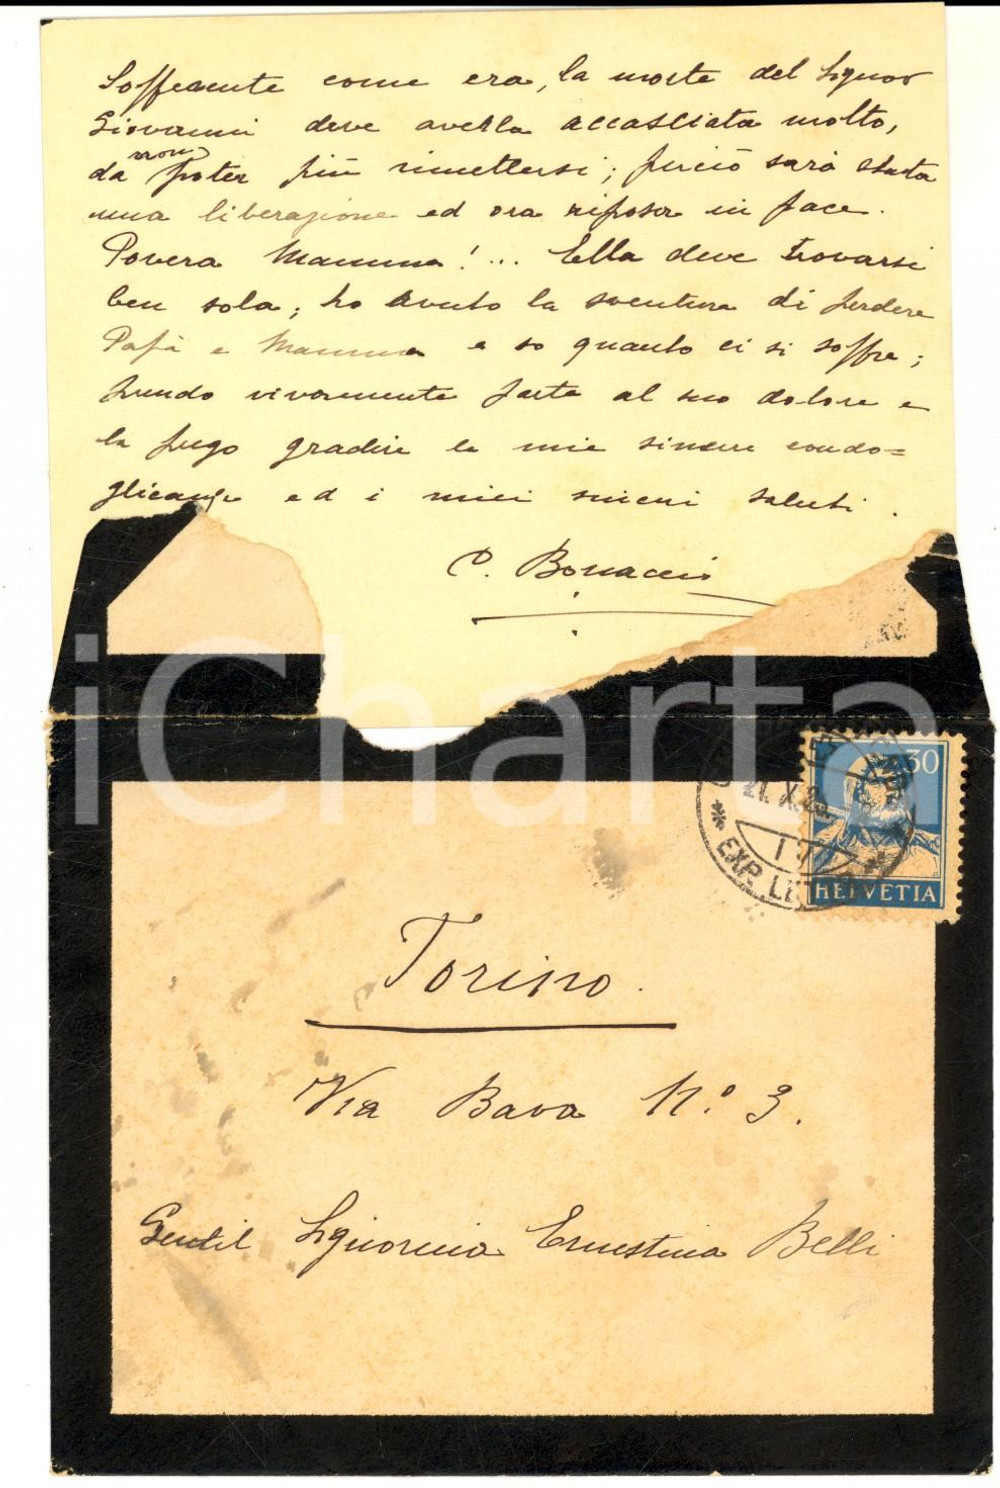 Sofferente come era, la morte del Signor
Giovanni deve averla accasciata molto,
da non poter più rimettersi; perciò sarà stata
una liberazione ed ora riposa in pace.
Povera Mamma!... Ella deve trovarsi
ben sola; ho avuto la sventura di perdere
Papà e Mamma e so quanto ci si soffre;
prendo vivamente parte al suo dolore e
la prego gradire le mie sincere condo=
glianze ed i miei sinceri saluti.
Bonaccio
iCharta
30
21.X.2
EXP. LE
HELVETIA
Torino.
Via Bava N.º 3.
Gentil Signorina Ernestina Belli